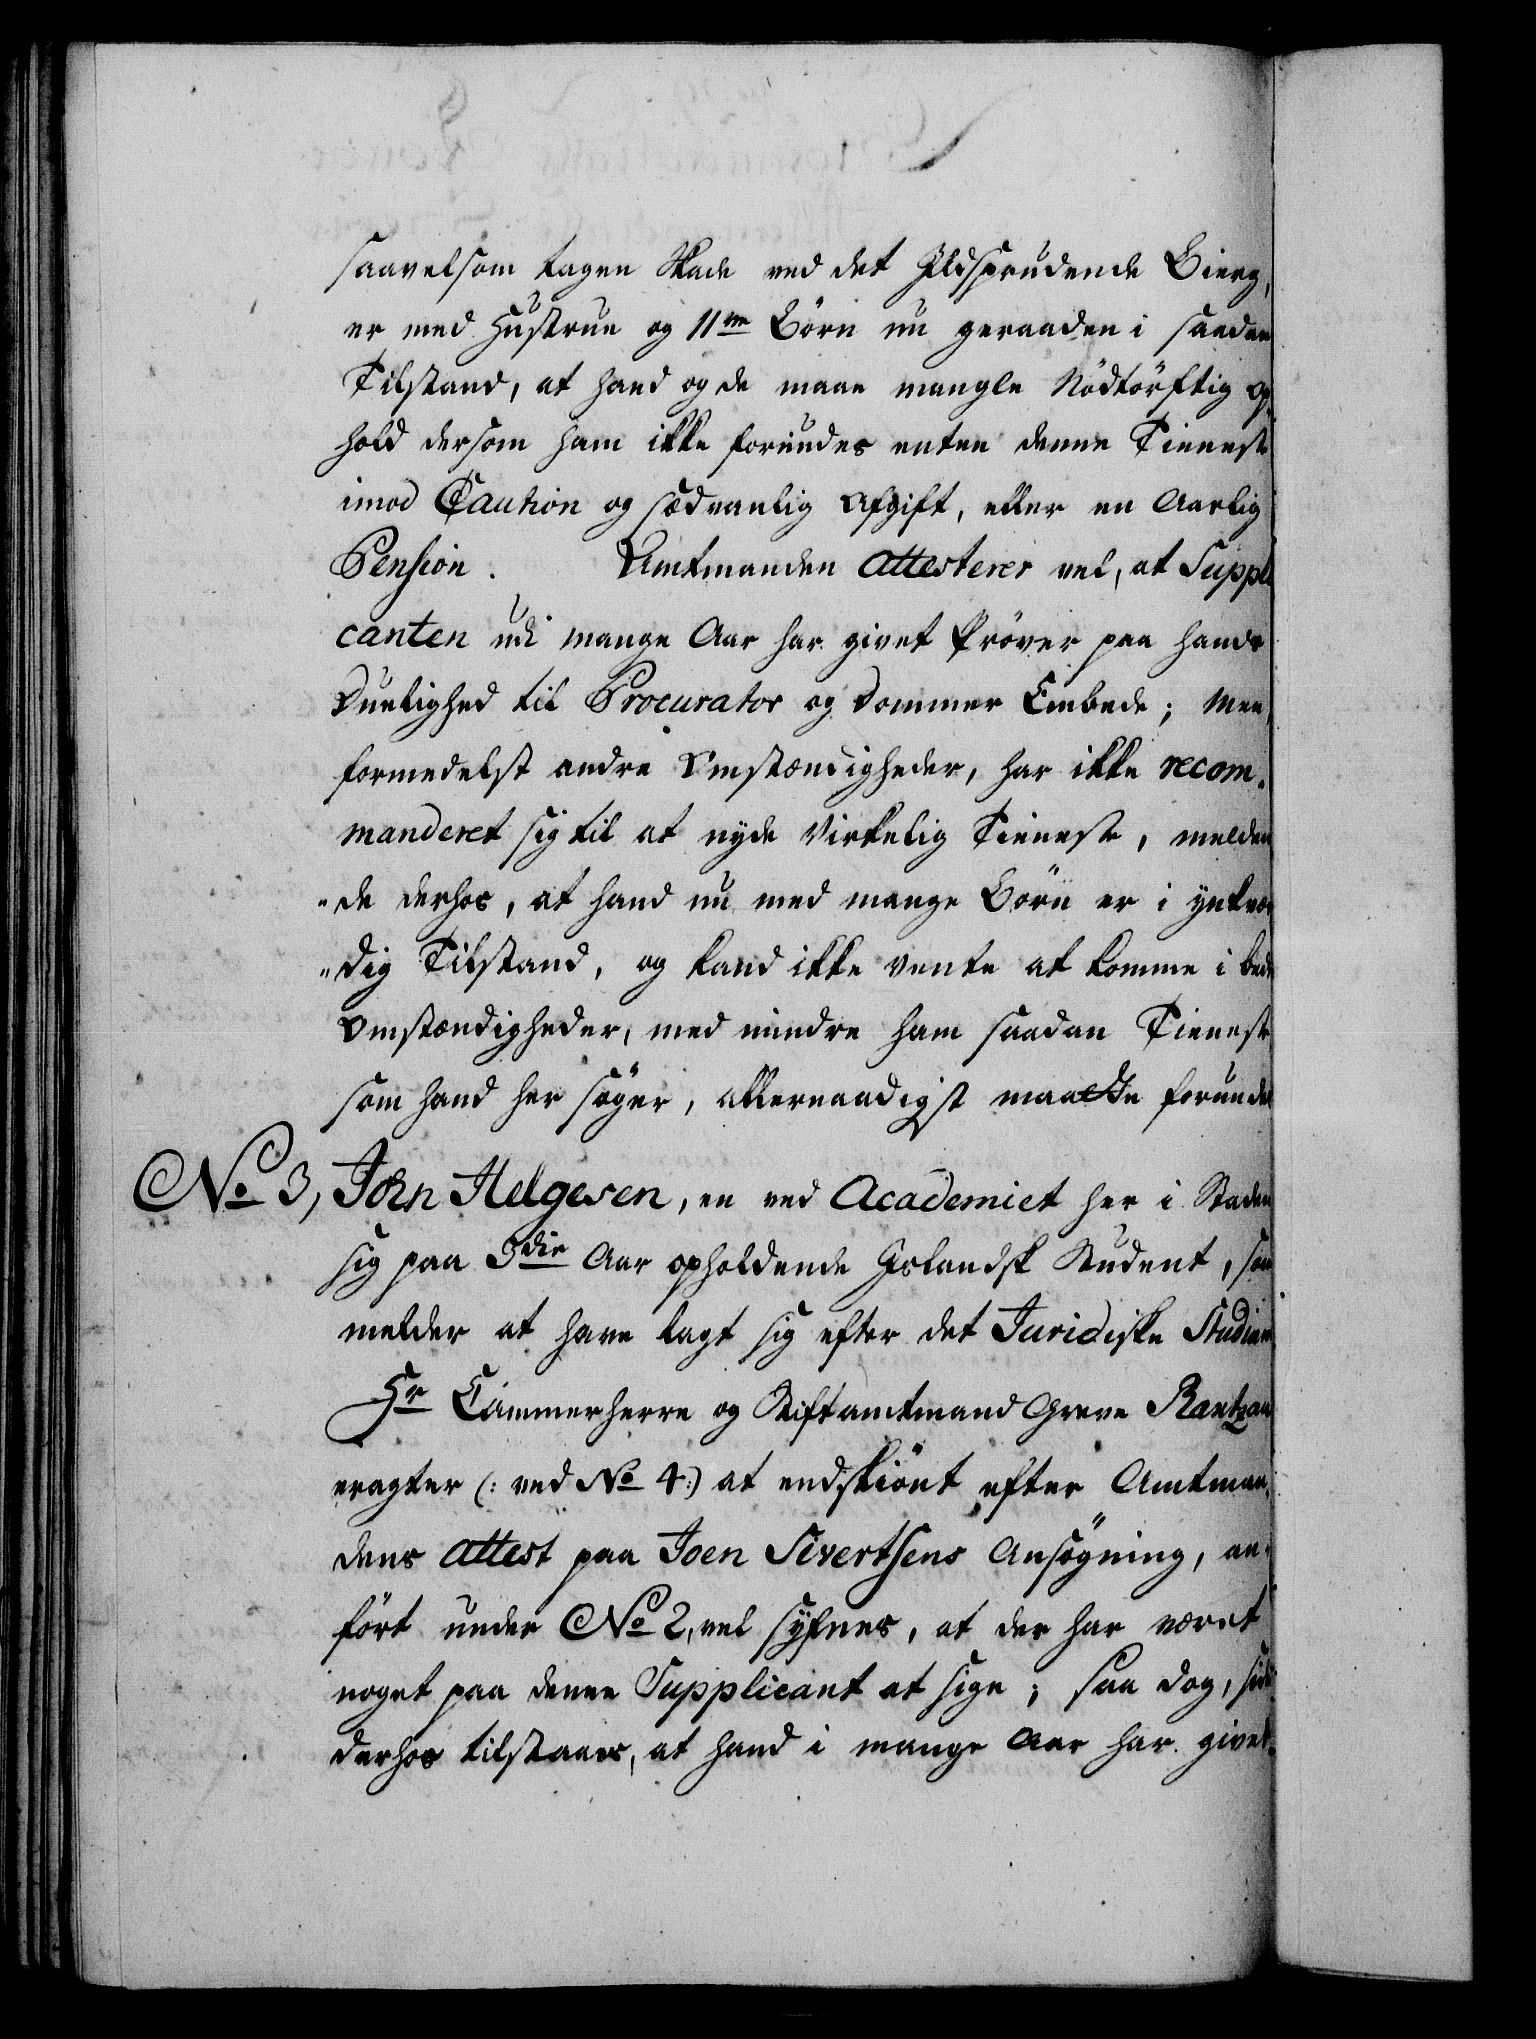 saavelsom tagen Skade ved det Ildsprudende Bierg,
er med Hustrue og 11ve Børn nu geraaden i saadan
Tilstand, at hand og de maae mangle Nödtörftig Op-
hold dersom ham ikke forundes enten denne Tieneste
imod Caution og sædvanlig Afgift, eller en Aarlig
Pension. Amtmanden attesterer vel, at Suppli
canten udi mange Aar har givet Prøver paa hands
Duelighed til Procurator og Dommer Embede; Men
formedelst andre Omstændigheder, har ikke recom-
manderet sig til at nyde Virkelig Tieneste, melden
de derhos, at hand nu med mange Börn er i ynkvær
dig Tilstand, og kand ikke vente at komme i bedre
Omstændigheder, med mindre ham saadan Tieneste
som hand her søger, allernaadigst maatte forundes
No 3, Joen Helgesen, en ved Academiet her i Staden
sig paa 3die Aar opholdende Islandsk Student, som
melder at have lagt sig efter det Juridiske Studium
Hr Cammerherre og Stiftamtmand Greve Rantzau
eragter (: ved No 4:) at endskiönt efter Amtman-
dens attest paa Joen Sivertsens Ansögning, an-
fört under No 2, vel syfnes, at der har været
noget paa denne Supplicant at sige; saa dog, siden
derhos tilstaaes, at hand i mange Aar har givet